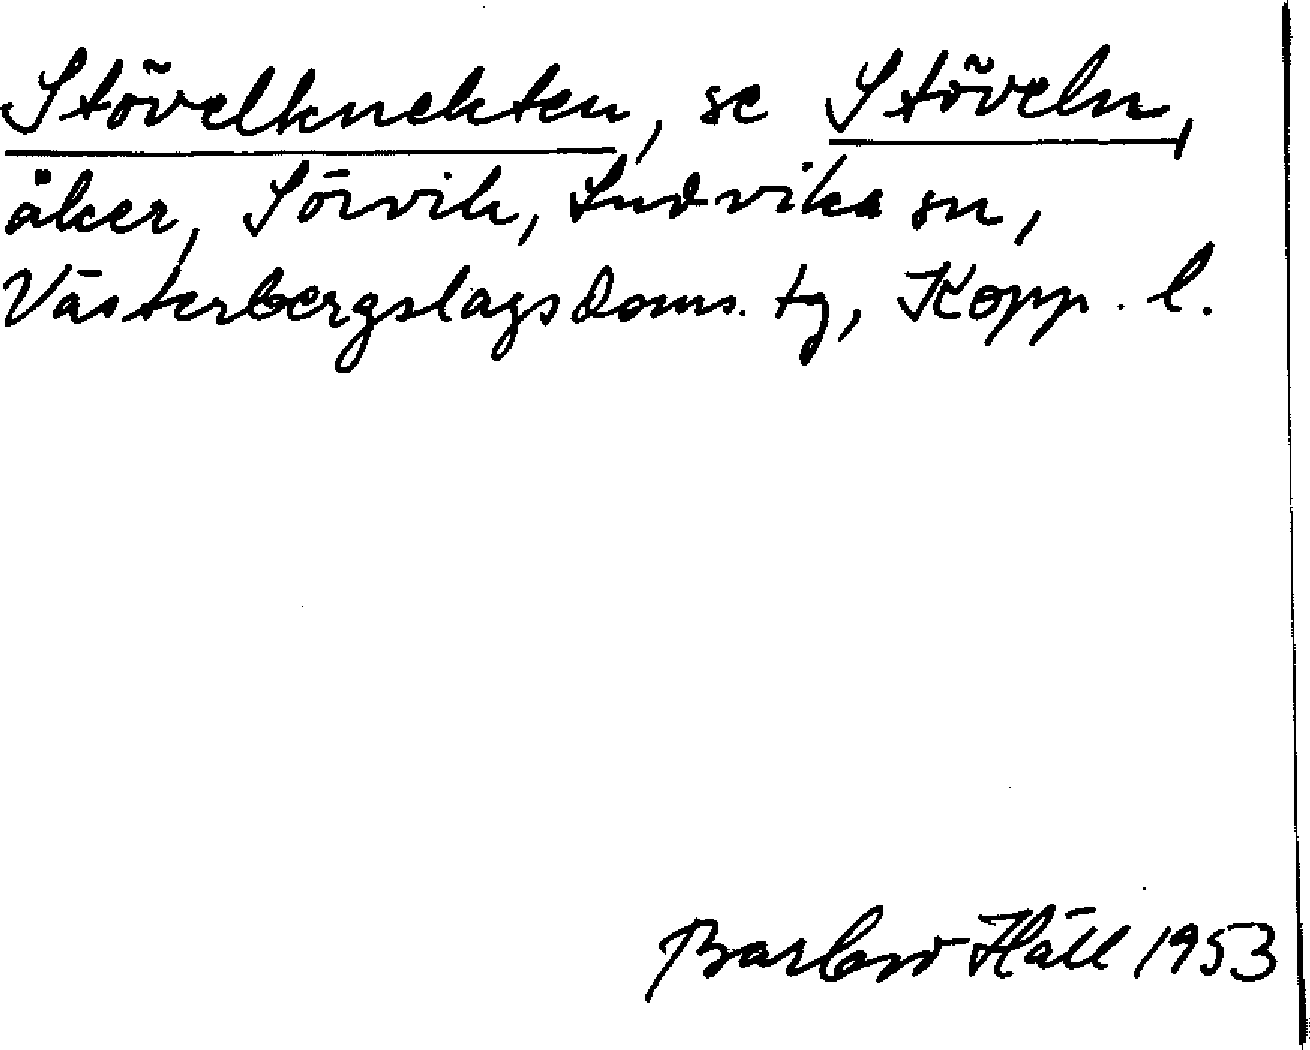 Stövelknekten, se Stöveln,
åker, Sörvik, Ludvika sn,
Västerbergslags doms. tg, Kopp. l.
Barbro Häll 1953